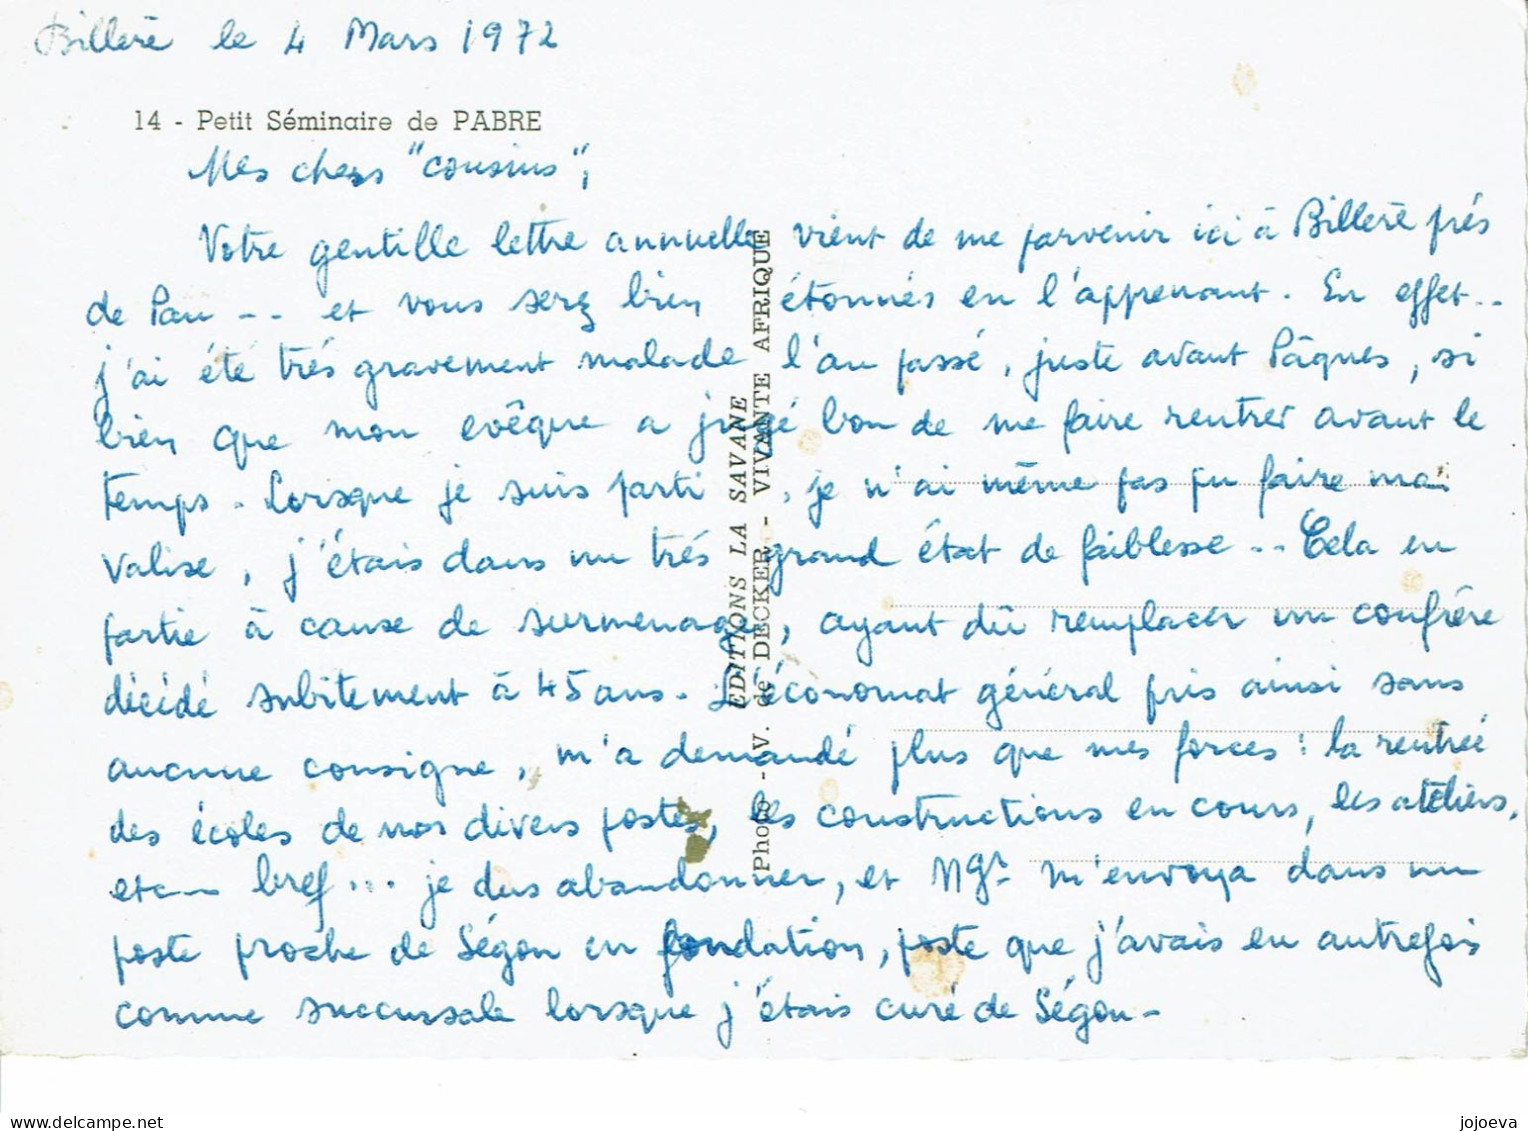 Billerē le 4 Mars 1972
14 - Petit Séminaire de PABRE
Mes chers "cousins",
Votre gentille lettre annuelle vient de me parvenir ici à Billerē prés
de Pau -- et vous serez bien étonnés en l'apprenant. En effet..
j'ai été trés gravement malade l'an passé, juste avant Pâques, si
bien que mon evêque a jugé bon de me faire rentrer avant le
temps - Lorsque je suis parti, je n'ai même pas pu faire ma
valise, j'étais dans un trés grand état de faiblesse -- Cela en
partie à cause de surmenage, ayant dû remplacer un confrére
décédé subitement à 45 ans - L'économat général pris ainsi sans
aucune consigne, m'a demandé plus que mes forces : la rentrée
des écoles de nos divers postes, les constructions en cours, les ateliers,
etc-- bref ... je dus abandonner, et Mgr m'envoya dans un
poste proche de Ségou en fondation, poste que j'avais eu autrefois
comme succursale lorsque j'étais curé de Ségou -
EDITIONS LA SAVANE
Photo - V. de DECKER - VIVANTE AFRIQUE
jojoeva